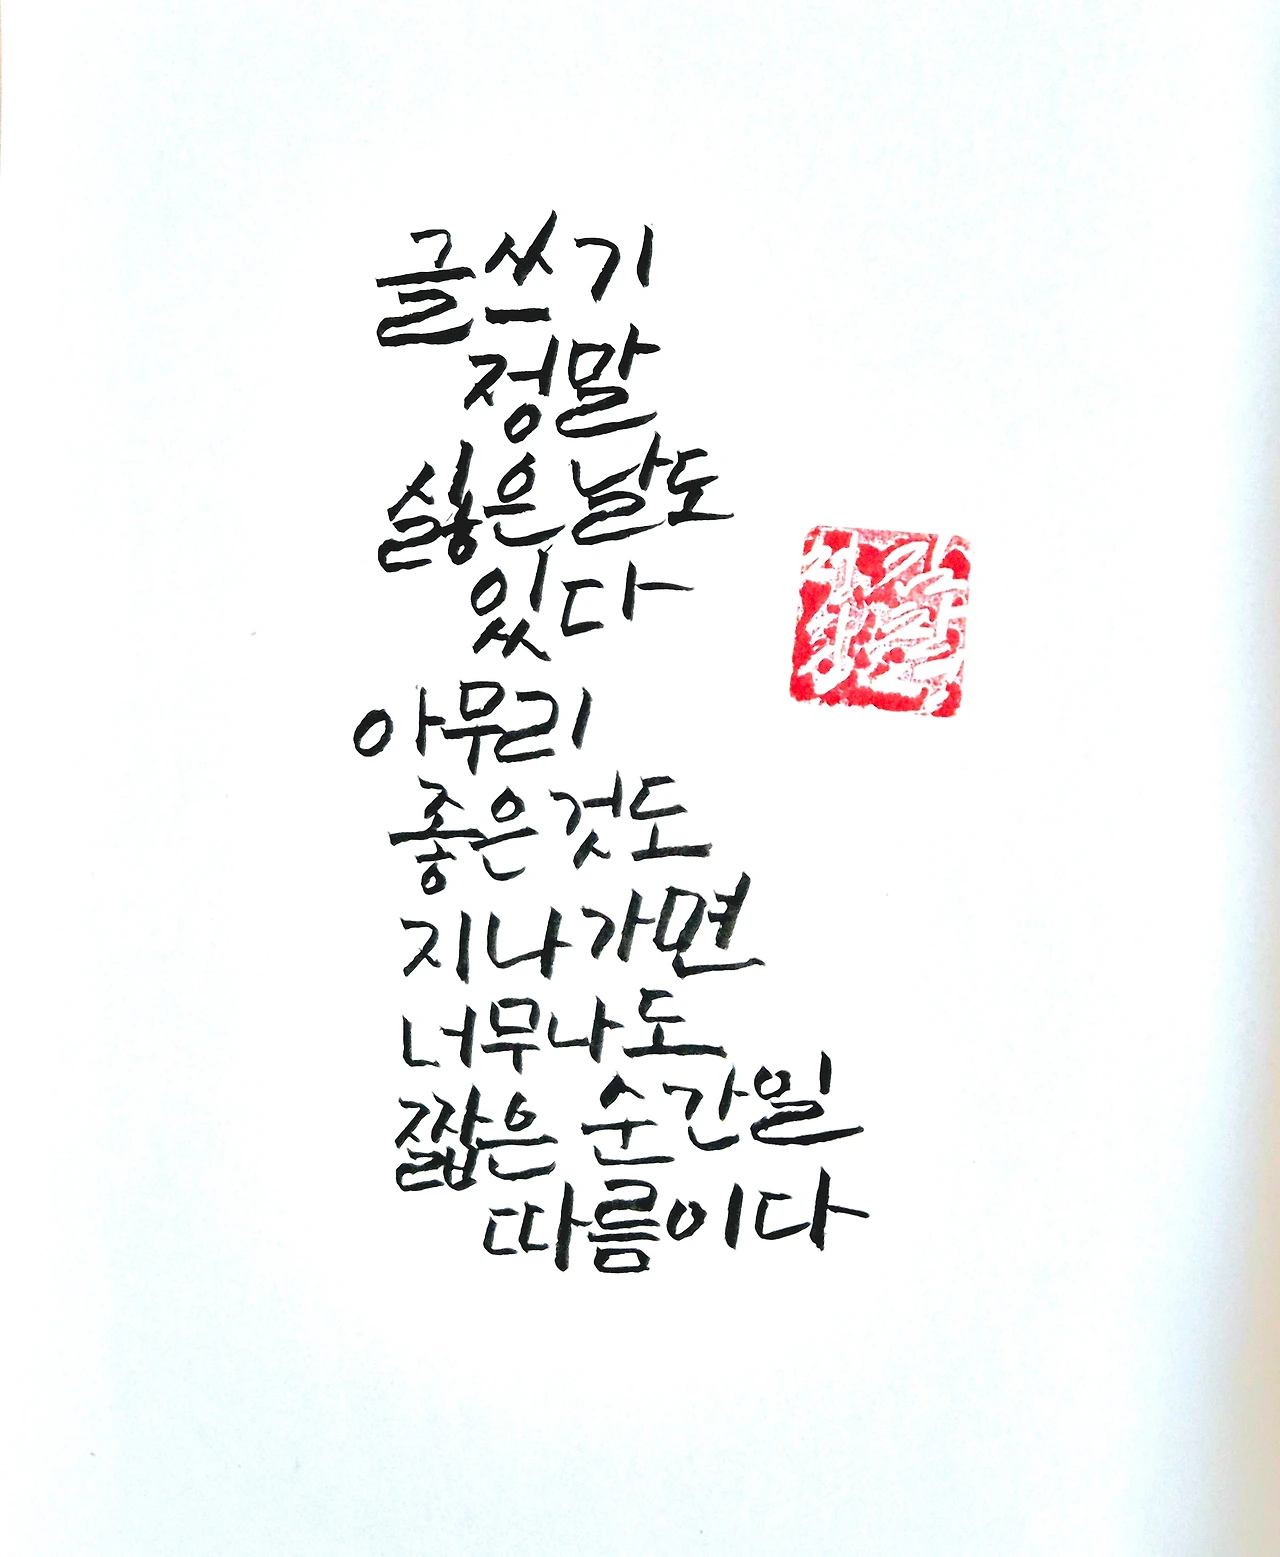 글쓰기
정말
싫은 날도
있다
아무리
좋은 것도
지나가면
너무나도
짧은 순간일
따름이다